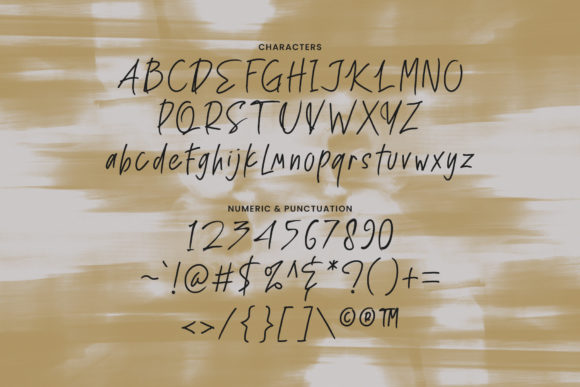 CHARACTERS
ABCDEFGHIJKLMNO
PQRSTUVWXYZ
abcdefghijklmnopqrstuvwxyz
NUMERIC & PUNCTUATION
1234567890
~`!@#$%^&*?()+=
<>/{}[]\©®™